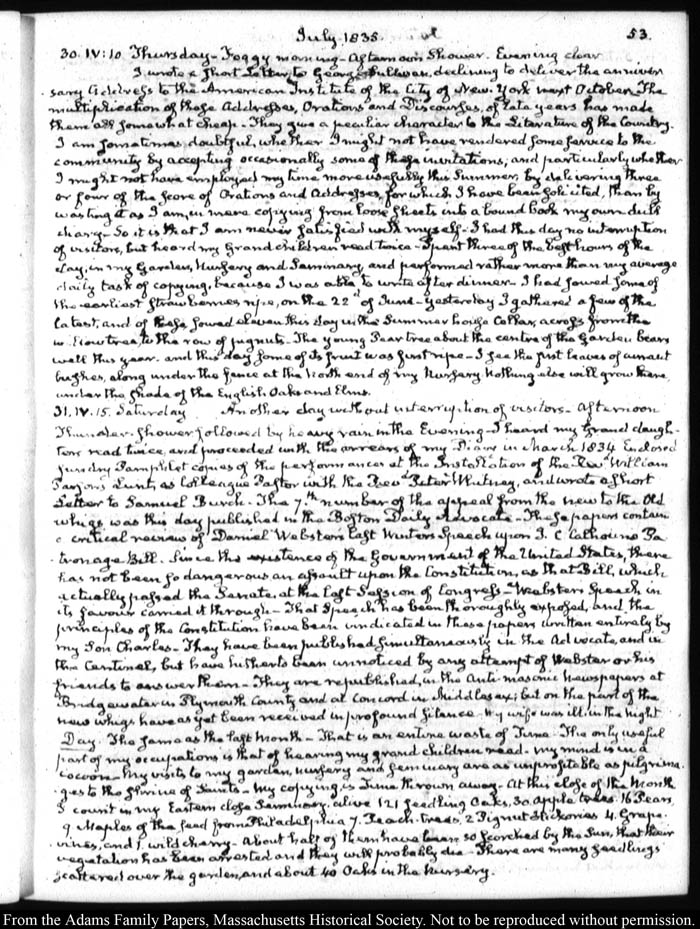 July 1835.
53.
30. IV:10 Thursday - Foggy morning - Afternoon Shower. Evening clear
I wrote a short Letter to George Sullivan, declining to deliver the anniver
sary Address to the American Institute of the City of New-York next October. The
multiplication of these Addresses, Orations and Discourses, of late years has made
them all somewhat cheap - They give a peculiar character to the Literature of the Country.
I am sometimes doubtful, whether I might not have rendered some service to the
community by accepting occasionally some of these invitations, and particularly whether
I might not have employed my time more usefully this Summer, by delivering three
or four of the score of Orations and Addresses, for which I have been solicited, than by
wasting it as I am, in mere copying from loose sheets into a bound book my own dull
diary - So it is that I am never satisfied with myself - I had this day no interruption
of visitors, but heard my Grandchildren read twice - Spent three of the best hours of the
day, in my Garden, Nursery and Seminary, and performed rather more than my average
daily task of copying, because I was able to write after dinner - I had sowed some of
the earliest Strawberries ripe, on the 22d of June - yesterday I gathered a few of the
latest, and of these sowed eleven this day in the Summer house Cellar, across from the
willow tree, to the row of pignuts - The young Pear tree about the centre of the Garden bears
well this year. and this day some of its fruit was first ripe - I see the first leaves of
bushes, along under the fence at the North end of my Nursery Nothing else will grow there,
under the shade of the English Oaks and Elms.
31. IV:15. Saturday Another day without interruption of visitors - Afternoon
Thunder-Shower followed by heavy rain in the Evening - I heard my Grand daugh-
ters read twice, and proceeded with the arrears of my Diary in March 1834 Enclosed
sundry Pamphlet copies of the performances at the Installation of the Revd William
Parsons Lunt, as Colleague Pastor with the Revd Peter Whitney, and wrote a short
Letter to Samuel Burch - The 7th number of the appeal from the new to the Old
whigs was this day published in the Boston Daily Advocate - These papers contain
a critical review of Daniel Webster's last Winter's Speech upon J. C Calhoun's Pa
tronage Bill. Since the existence of the Government of the United States, there
has not been so dangerous an assault upon the Constitution, as that Bill, which
actually passed the Senate, at the last Session of Congress - Webster's Speech in
its favour carried it through - That Speech has been thoroughly exposed, and the
principles of the Constitution have been vindicated in these papers written entirely by
my Son Charles - They have been published simultaneously in the Advocate, and in
the Centinel, but have hitherto been unnoticed by any attempt of Webster or his
friends to answer them - They are republished, in the Anti-masonic Newspapers at
Bridgewater in Plymouth County and at Concord in Middlesex; but on the part of the
new whigs have as yet been received in profound silence. My wife was ill in the night
Day. The same as the last month - That is an entire waste of Time - The only useful
part of my occupations is that of hearing my grand children read - my mind is in a
cocoon - My visits to my garden, nursery and seminary are as unprofitable as pilgrima
ges to the shrine of Saints - My copying, is time thrown away - At this close of the Month
I count in my Eastern close Seminary, alive 121 seedling Oaks, 30 apple trees 16 Pears,
9 Maples of the seed from Philadelphia 7. Peach-trees, 2 Pignut Hickories 4. Grape
vines, and 1. wild cherry - About half of them have been so scorched by the Sun, that their
vegetation has been arrested and they will probably die - There are many seedlings
scattered over the garden, and about 40 Oaks in the Nursery.
From the Adams Family Papers, Massachusetts Historical Society. Not to be reproduced without permission.